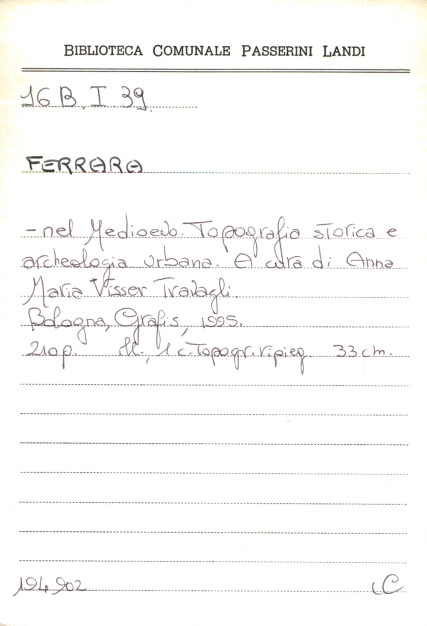 BIBLIOTECA COMUNALE PASSERINI LANDI
16 B. I 39
FERRARA
- nel Medioevo. Topografia storica e
archeologia urbana. A cura di Anna
Maria Visser Travagli.
Bologna, Grafis, 1995.
210 p. Ill., 1 c. topogr. ripieg. 33 cm.
194902 C